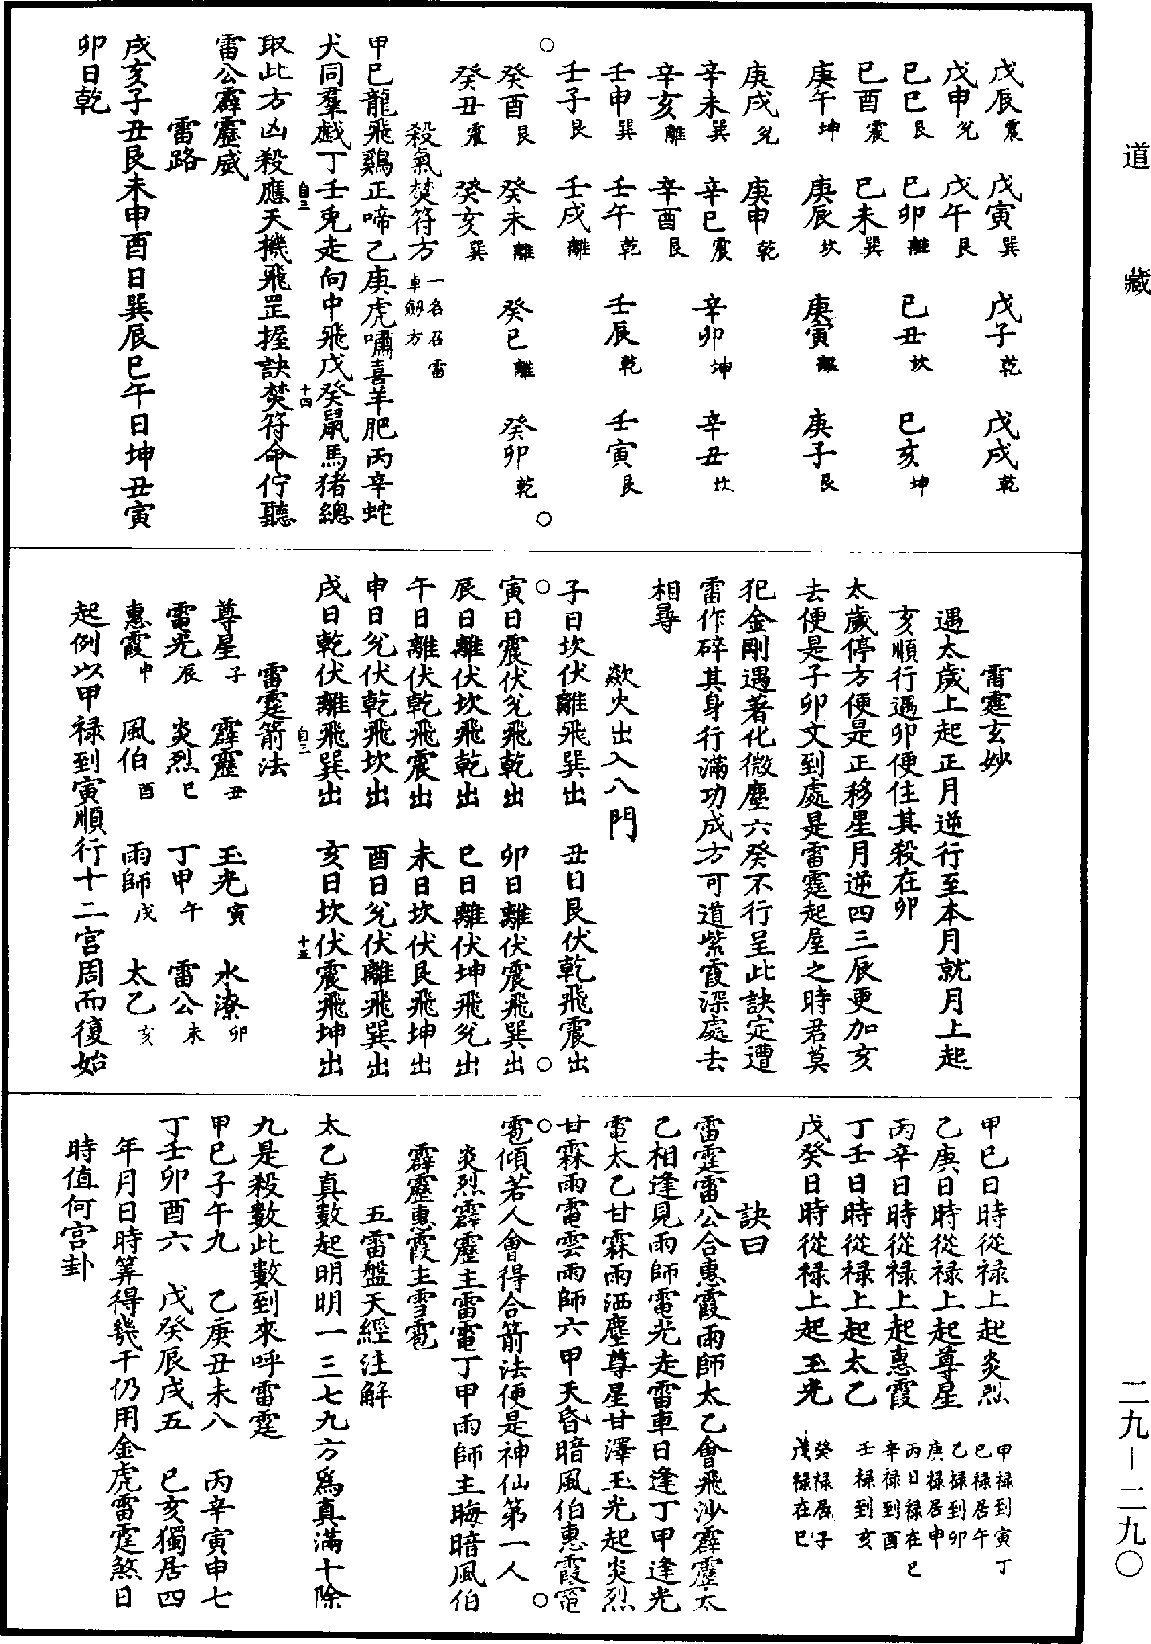 道藏
戊辰震 戊寅巽 戊子乾 戊戌乾
戊申兌 戊午艮
己巳艮 己卯離 己丑坎 己亥坤
己酉震 己未巽
庚午坤 庚辰坎 庚寅離 庚子艮
庚戌兌 庚申乾
辛未巽 辛巳震 辛卯坤 辛丑坎
辛亥離 辛酉艮
壬申巽 壬午乾 壬辰乾 壬寅艮
壬子艮 壬戌離
癸酉艮 癸未離 癸巳離 癸卯乾
癸丑震 癸亥巽
殺氣焚符方一名召雷卓劒方
甲巳龍飛鷄正啼乙庚虎嘯喜羊肥丙辛蛇
犬同羣戲丁壬兎走向中飛戊癸鼠馬猪總
取此方凶殺應天機飛罡握訣焚符命佇聽
雷公霹靂威
雷路
戌亥子丑艮未申酉日巽辰巳午日坤丑寅
卯日乾
雷霆玄妙
遇太歲上起正月逆行至本月就月上起
亥順行遇卯便住其殺在卯
太歲停方便是正移星月逆四三辰更加亥
去便是子卯文到處是雷霆起屋之時君莫
犯金剛遇著化微塵六癸不行呈此訣定遭
雷作碎其身行滿功成方可道紫霞深處去
相尋
歘火出入八門
子日坎伏離飛巽出 丑日艮伏乾飛震出
寅日震伏兌飛乾出 卯日離伏震飛巽出
辰日離伏坎飛乾出 巳日離伏坤飛兌出
午日離伏乾飛震出 未日坎伏艮飛坤出
申日兌伏乾飛坎出 酉日兌伏離飛巽出
戌日乾伏離飛巽出 亥日坎伏震飛坤出
雷霆箭法
尊星子 霹靂丑 玉光寅 水潦卯
雷光辰 炎烈巳 丁甲午 雷公未
惠霞申 風伯酉 雨師戌 太乙亥
起例以甲祿到寅順行十二宮周而復始
甲巳日時從祿上起炎烈甲祿到寅丁巳祿居午
乙庚日時從祿上起尊星乙祿到卯庚祿居申
丙辛日時從祿上起惠霞丙日祿在巳辛祿到酉
丁壬日時從祿上起太乙壬祿到亥
戊癸日時從祿上起玉光癸祿居子戊祿在巳
訣曰
雷霆雷公合惠霞雨師太乙會飛沙霹靂太
乙相逢見雨師電光走雷車日逢丁甲逢光
電太乙甘霖雨洒塵尊星甘澤玉光起炎烈
甘霖雨電雲雨師六甲天昏暗風伯惠霞電
雹傾若人會得合箭法便是神仙第一人
炎烈霹靂主雷電丁甲雨師主晦暗風伯
霹靂惠霞主雪雹
五雷盤天經注解
太乙真數起明明一三七九方爲真滿十除
九是殺數此數到來呼雷霆
甲巳子午九 乙庚丑未八 丙辛寅申七
丁壬卯酉六 戊癸辰戌五 巳亥獨居四
年月日時筭得幾干仍用金虎雷霆煞日
時值何宮卦
二九—二九〇